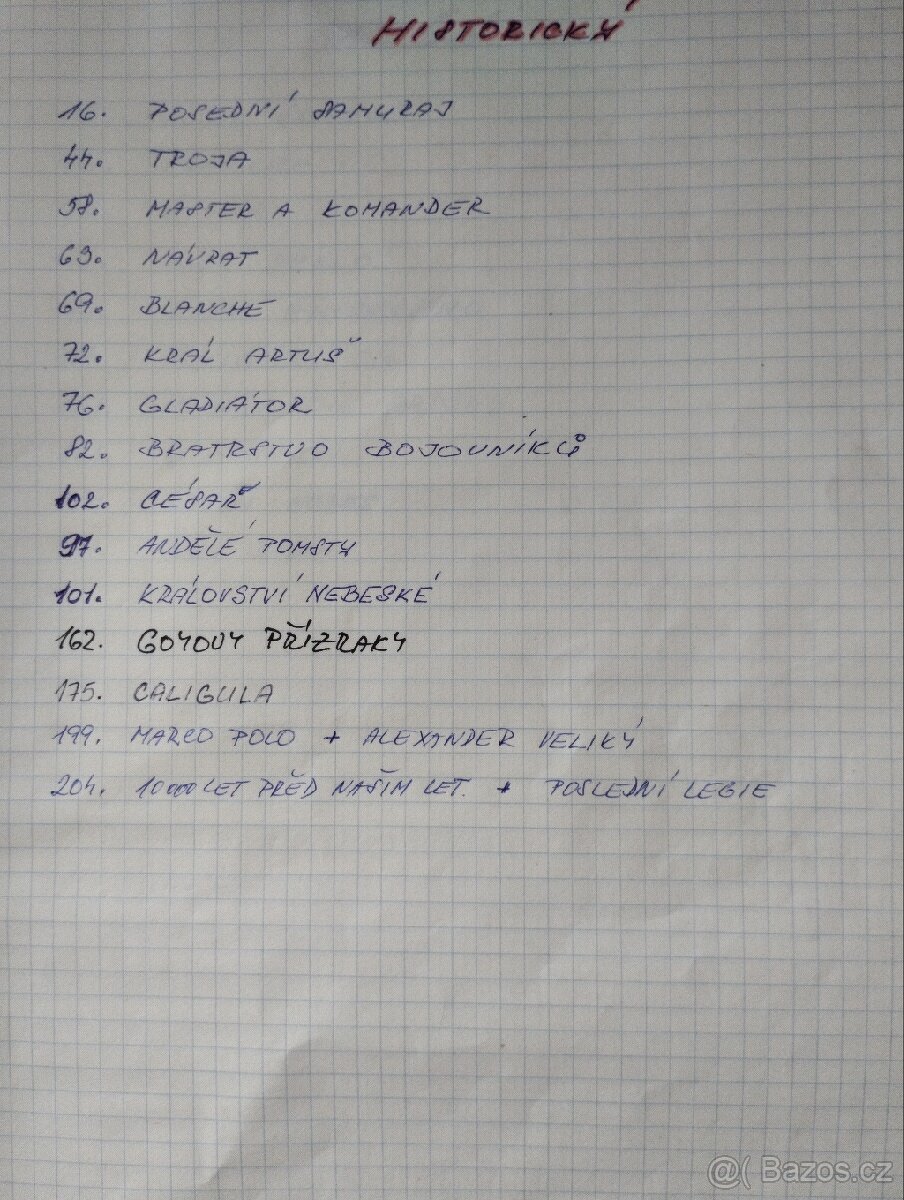 HISTORICKÝ
16. POSEDNÍ SAMURAJ
44. TROJA
58. MASTER A KOMANDER
63. NÁVRAT
69. BLANCHE
72. KRÁL ARTUŠ
76. GLADIÁTOR
82. BRATRSTVO BOJOVNÍKŮ
102. CÉSAŘ
97. ANDĚLÉ POMSTY
101. KRÁLOVSTVÍ NEBESKÉ
162. GOYOVY PŘÍZRAKY
175. CALIGULA
199. MARCO POLO + ALEXANDER VELIKÝ
204. 10000 LET PŘED NAŠÍM LET. + POSLEDNÍ LEGIE
@( Bazos.cz